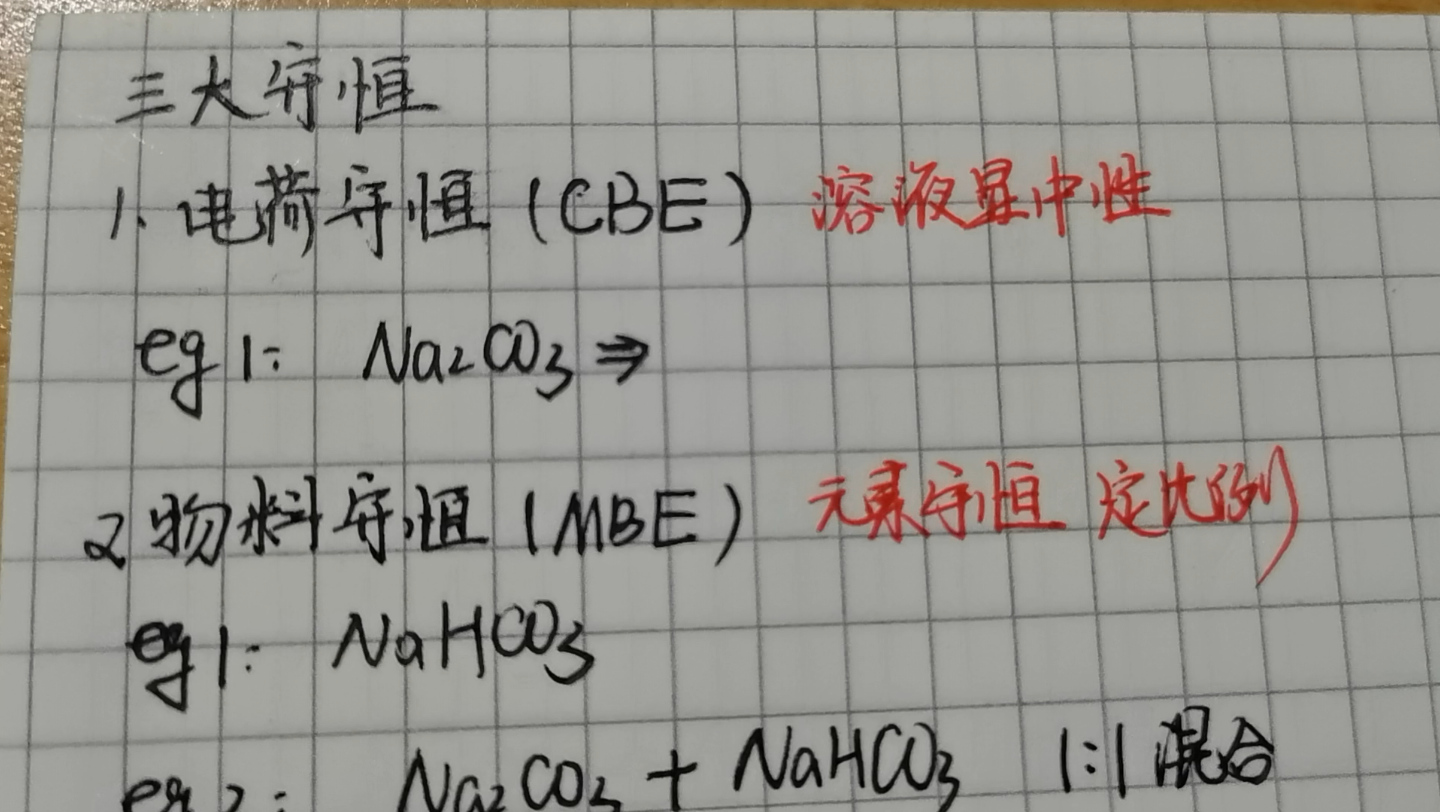 三大守恒
1. 电荷守恒 (CBE) 溶液显中性
eg 1: Na₂CO₃ ⇒
2 物料守恒 (MBE) 元素守恒 定比例
eg 1: NaHCO₃
eg 2: Na₂CO₃ + NaHCO₃ 1:1 混合